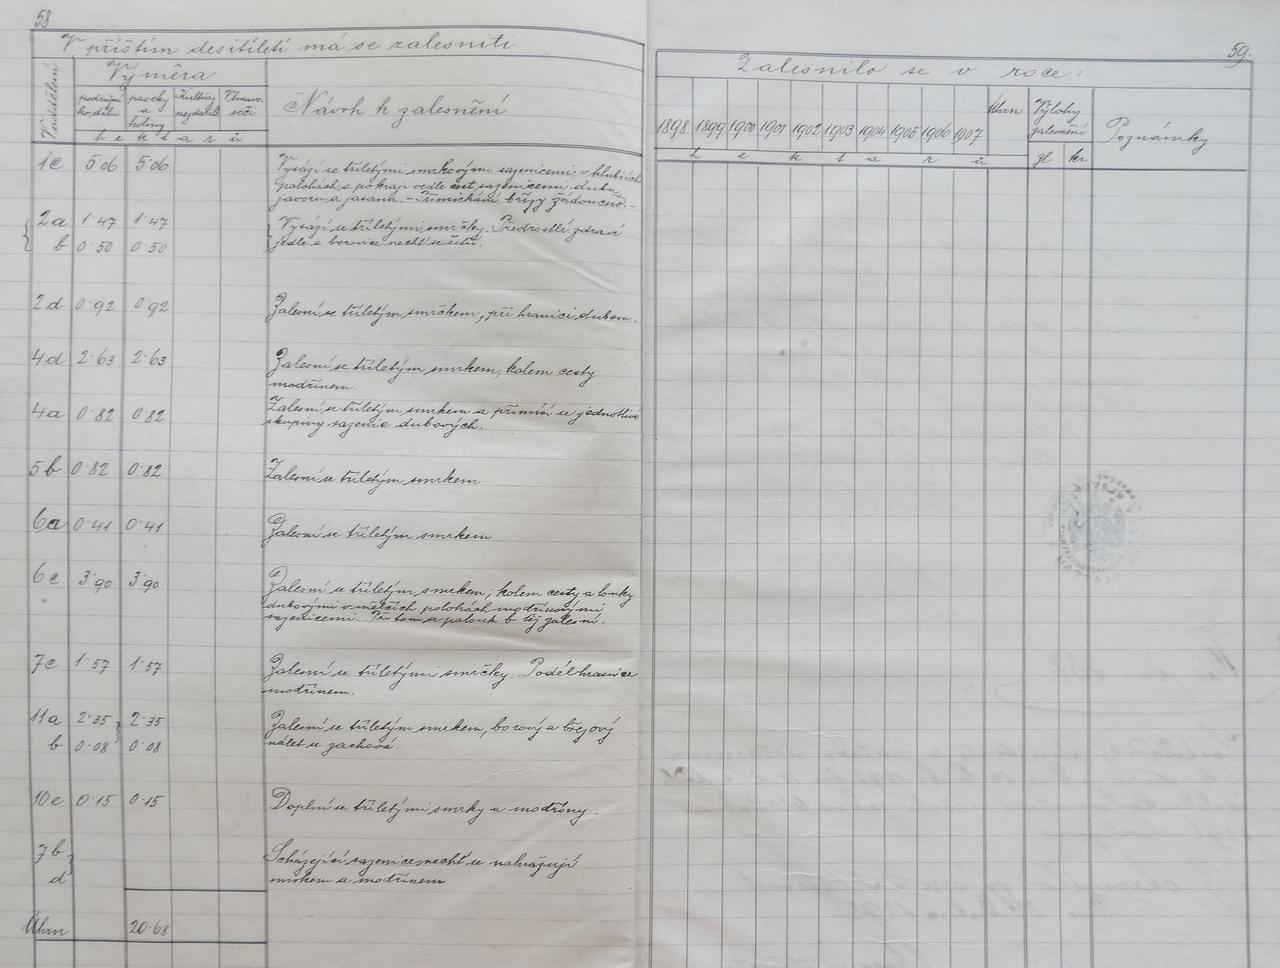 58.
V příštím desítiletí má se zalesniti
Pododdělení
Výměra
Návrh k zalesnění
podrujmí ho dílu
paseky a holiny
Kultury nezdařilé
Vlmava seči
h e k t a r ů
1c 5·06 5·06 Vysází se tříletými smrkovými sazenicemi, v hlubších
polohách a po kraji vedle cest sazenicemi dubu,
javoru a jasanu. – Přimíchání břízy žádoucno. –
2a 1·47 1·47 Vysází se tříletými smrčky. Předrostlé zdravé
b 0·50 0·50 jedle a borovice nechť se šetří.
2d 0·92 0·92 Zalesní se tříletým smrčkem, při hranici dubem.
4d 2·63 2·63 Zalesní se tříletým smrkem, kolem cesty
modřínem.
4a 0·82 0·82 Zalesní se tříletým smrkem a přimísí se jednotlivé
skupiny sazenic dubových.
5b 0·82 0·82 Zalesní se tříletým smrkem
6a 0·41 0·41 Zalesní se tříletým smrkem
6c 3·90 3·90 Zalesní se tříletým smrkem; kolem cesty a louky
dubovými v mělčích polohách modřínovými
sazenicemi. Při tom se palouk b téj zalesní.
7c 1·57 1·57 Zalesní se tříletými smrčky. Podél hranice
modřínem.
11a 2·35 2·35 Zalesní se tříletým smrkem, borový a březový
b 0·08 0·08 nálet se zachová.
10e 0·15 0·15 Doplní se tříletými smrky a modříny.
7b Scházející sazenice nechť se nahražují
d smrkem a modřínem
Úhrn 20·68
59.
Zalesnilo se v roce:
1898 1899 1900 1901 1902 1903 1904 1905 1906 1907 Úhrn
Výlohy zalesnění
Poznámky
h e k t a r ů zl kr